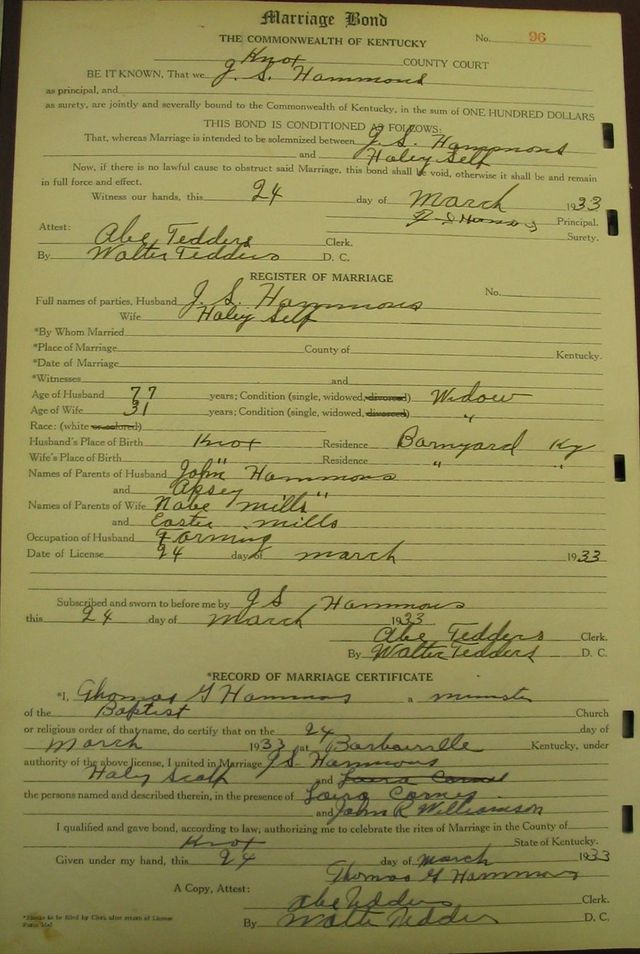 Marriage Bond
THE COMMONWEALTH OF KENTUCKY No. 96
Knox COUNTY COURT
BE IT KNOWN, That we J. S. Hammons
as principal, and
as surety, are jointly and severally bound to the Commonwealth of Kentucky, in the sum of ONE HUNDRED DOLLARS
THIS BOND IS CONDITIONED AS FOLLOWS:
That, whereas Marriage is intended to be solemnized between J. S. Hammons
and Haley Self
Now, if there is no lawful cause to obstruct said Marriage, this bond shall be void, otherwise it shall be and remain
in full force and effect.
Witness our hands, this 24 day of March 1933
J S Hamons Principal.
Surety.
Attest: Abe Tedders Clerk.
By Walter Tedders D. C.
REGISTER OF MARRIAGE
Full names of parties, Husband J. S. Hammons No.
Wife Haley Self
*By Whom Married
*Place of Marriage County of Kentucky.
*Date of Marriage
*Witnesses and
Age of Husband 77 years; Condition (single, widowed, divorced) Widow
Age of Wife 31 years; Condition (single, widowed, divorced) "
Race: (white or colored)
Husband's Place of Birth Knox Residence Barnyard Ky
Wife's Place of Birth " Residence " "
Names of Parents of Husband John Hammons
and Apsey "
Names of Parents of Wife Nabe mills
and Easter mills
Occupation of Husband Farming
Date of License 24 day of march 1933
Subscribed and sworn to before me by J S Hammons
this 24 day of March 1933
Abe Tedders Clerk.
By Walter Tedders D. C.
*RECORD OF MARRIAGE CERTIFICATE
*I, Thomas G Hammons a minister
of the Baptist Church
or religious order of that name, do certify that on the 24 day of
March 1933 at Barbourville Kentucky, under
authority of the above license, I united in Marriage J S Hammons
Haley Scalf and
the persons named and described therein, in the presence of Carnes
and John R Williamson
I qualified and gave bond, according to law, authorizing me to celebrate the rites of Marriage in the County of
Knox State of Kentucky.
Given under my hand, this 24 day of March 1933
Thomas G Hammons
A Copy, Attest: Abe Tedders Clerk.
By Walter Tedders D. C.
*Blanks to be filled by Clerk after return of License